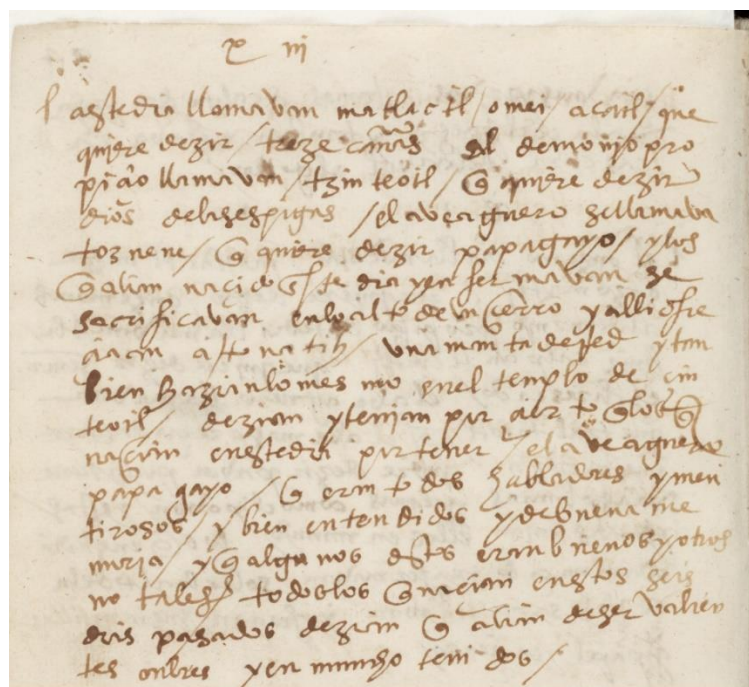 x iii
l a este dia llamavan matlactl / omei / acatl / que
quiere dezir / treze cañas al demonjo pro
piçio llamavan / tzinteotl / q̃ quiere dezir
dios delas espigas / el ave aguero se llamava
toznene / q̃ quiere dezir papagayo / y los
q̃ aviam naçido este dia y enfermavan se
sacrificavam en lo alto de un çerro y alli ofre
çiam a tonatih / una manta de red y tan
bien hazian lo mesmo en el templo de çin
teotl / dezian y tenian por çierto q̃ los q̃
naçiam en este dia por tener el ave aguero
papagayo / q̃ eram todos habladores y men
tirosos y bien entendidos y de buena me
moria / y q̃ algunos destos eram buenos y otros
no tales / todos los q̃ naçian en estos seis
dias pasados deziam q̃ aviam de ser valien
tes onbres y en muncho tenidos /